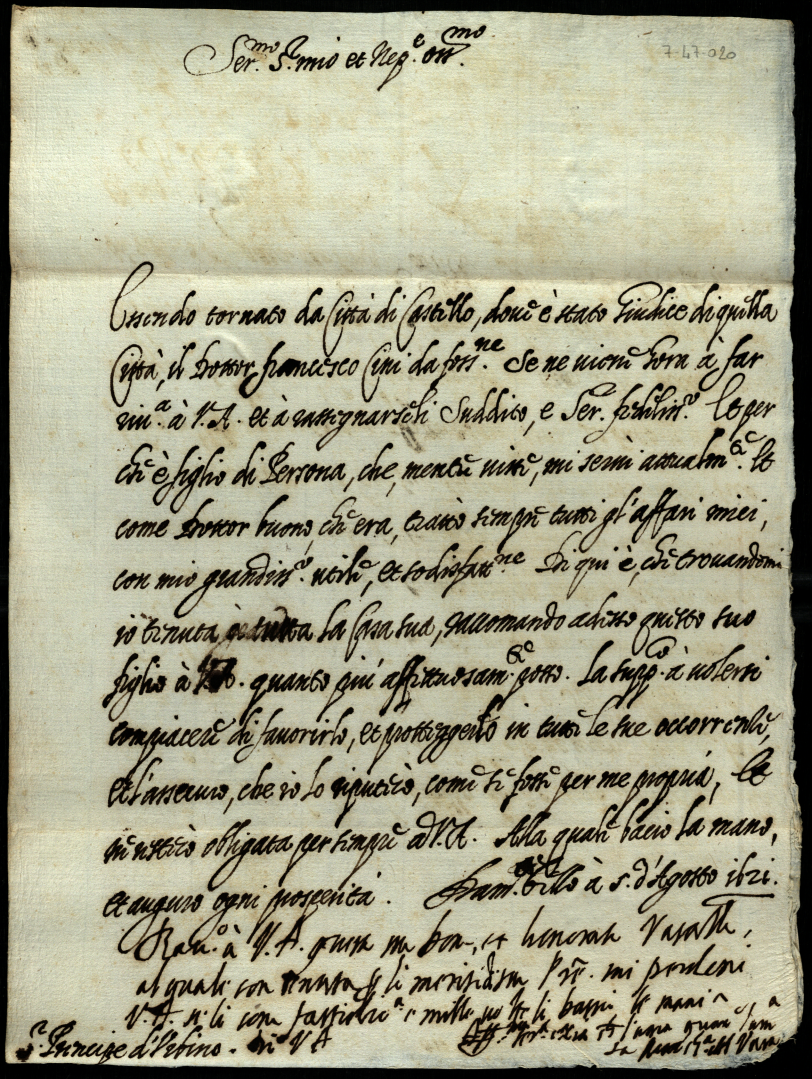 Ser.mo S.r mio et Nep.e oss.mo
7-47-020
Essendo tornato da Città di Castello, dove è stato Giudice di quella
Città, il Dottor Francesco Cini da foss.ne Se ne viene hora à far
riv.a à V.A. et à rassegnarseli Suddito, e Ser.e fedeliss.o Et per
che è figlio di Persona, che, mentre visse, mi servì attualm.te Et
come Dottor buono, che era, trattò sempre tutti gl'affari miei,
con mio grandiss.o utile, et sodisfatt.ne Di qui è, che trovandomi
io tenuta à tutta la Casa sua, raccomando adesso questo suo
figlio à V.A. quanto più affettuosam.te posso. La supp.co à volersi
compiacere di favorirlo, et proteggerlo in tutte le sue occorrenze,
et l'assicuro, che io lo riputerò, come se fosse per me propria, Et
ne resterò obligata per sempre ad V.A. Alla quale bacio la mano,
et auguro ogni prosperità. à 5. d'Agosto 1621.
Rac.o à V.A. questa mia
al quale con
V.A. se li e mille li le mani
S.r Principe d'Urbino. Di V A